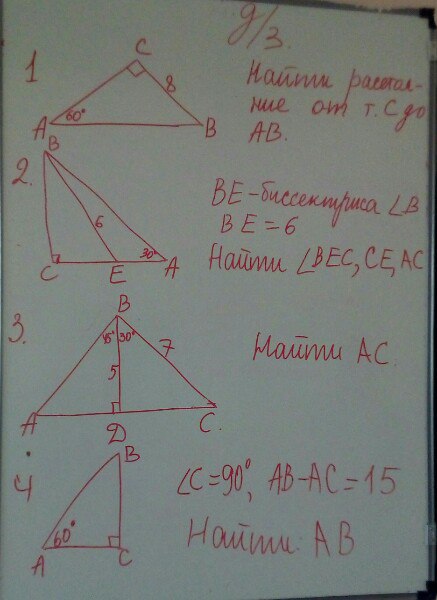 д/з.
1
C
8
60°
A
B
Найти расстоя-
ние от т. C до
AB.
2.
B
6
30°
C
E
A
BE-биссектриса ∠B
BE=6
Найти ∠BEC, CE, AC
3.
B
45°
30°
7
5
A
D
C.
Найти AC.
4
B
60°
A
C
∠C=90°, AB-AC=15
Найти AB